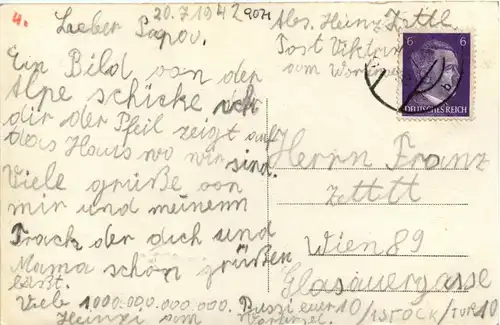 4.
20.7.1942
9071
Lieber Papou.
Ein Bild von der
Alpe schicke ich
dir der Pfeil zeigt auf
das Haus wo wir sind.
Viele grüße von
mir und meinenn
Track der dich und
Mama schön grüßen
läßt.
Viele 1000.000.000.000. Bussi euer
Heinzi vom
Abs. Heinz Zettl.
Post Viktrin
6 6
DEUTSCHES REICH
Herrn Franz
Zettl
Wien 89
Glasauergasse
10/1STOCK/TÜR10